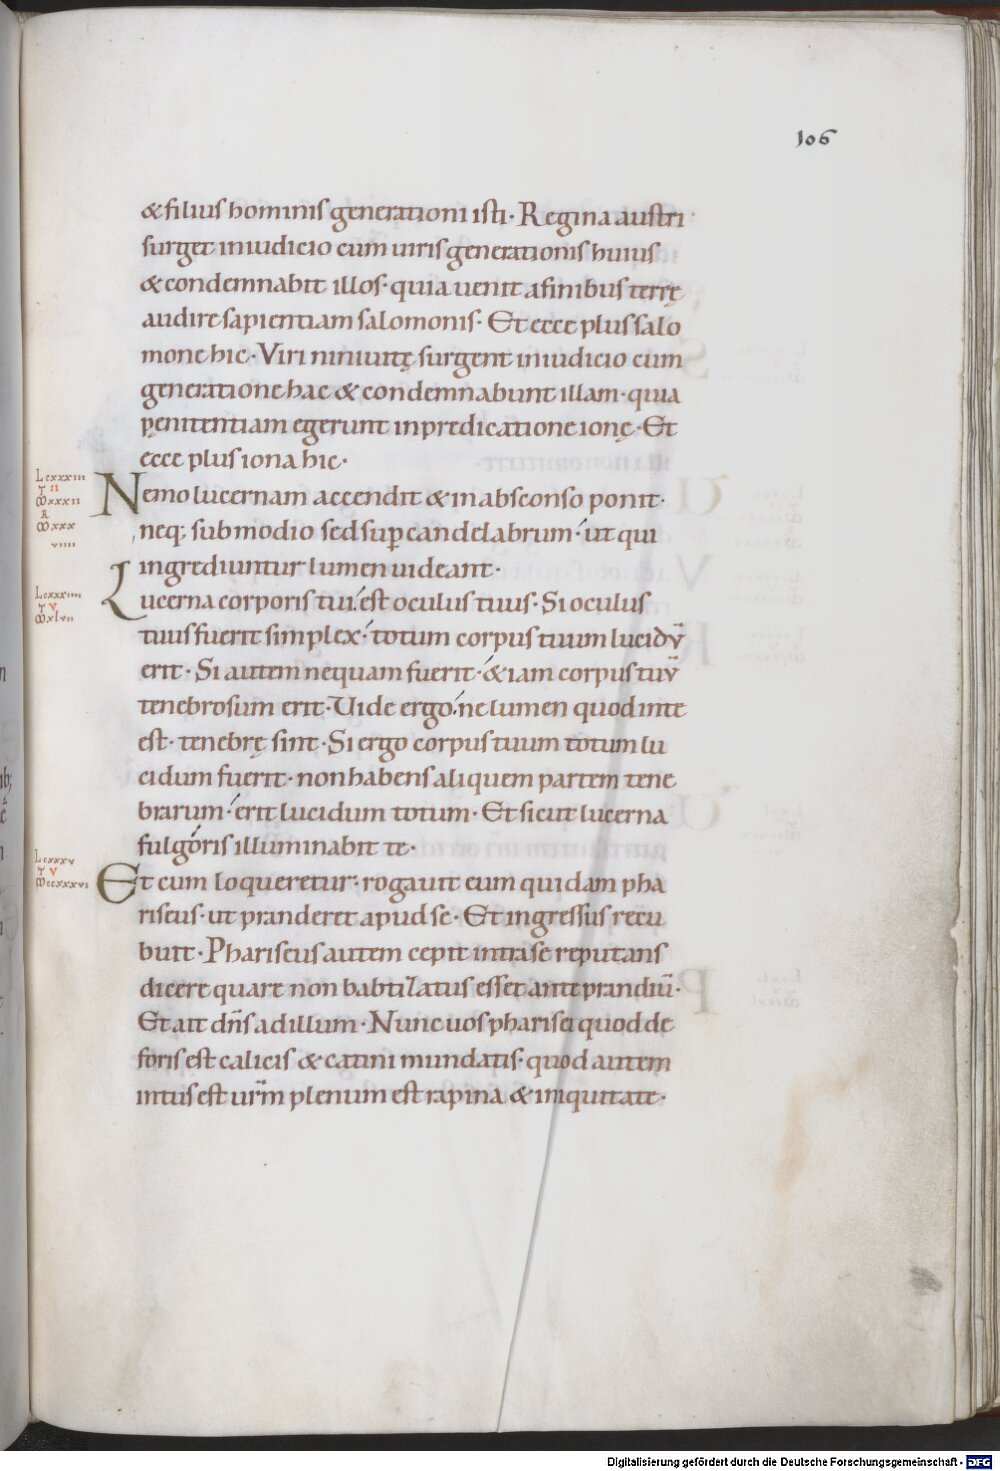 106
&filius hominis generationi isti· Regina austri
surget in iudicio cum uiris generationis huius
&condemnabit illos· quia uenit afinibus terrę
audire sapientiam salomonis· Et ecce plus salo
mone hic· Viri niniuitę surgent in iudicio cum
generatione hac & condemnabunt illam· quia
pęnitentiam egerunt in predicatione ionę· Et
ecce plus iona hic·
Lcxxxiii
L II
Mxxxii
R
Mxxx
viiii
Nemo lucernam accendit & in absconso ponit·
neq; submodio sed sup candelabrum· ut qui
ingrediuntur lumen uideant·
Lcxxxiiii
V
Mxlvii
Lucerna corporis tui est oculus tuus· Si oculus
tuus fuerit simplex· totum corpus tuum lucidū
erit· Si autem nequam fuerit· &iam corpus tuū
tenebrosum erit· Uide ergo ne lumen quod in te
est· tenebrę sint· Si ergo corpus tuum totum lu
cidum fuerit· non habens aliquem partem tene
brarum· erit lucidum totum· Et sicut lucerna
fulgoris illuminabit te·
Lcxxxv
V
Mccxxxvi
Et cum loqueretur· rogauit eum quidam pha
riseus· ut pranderet apud se· Et ingressus recu
buit· Phariseus autem cepit intra se reputans
dicere quare non babtizatus esset ante prandiū·
Et ait dn̄s ad illum· Nunc uos pharisei quod de
foris est calicis & catini mundatis· quod autem
intus est ur̄m plenum est rapina & iniquitate·
Digitalisierung gefördert durch die Deutsche Forschungsgemeinschaft - DFG